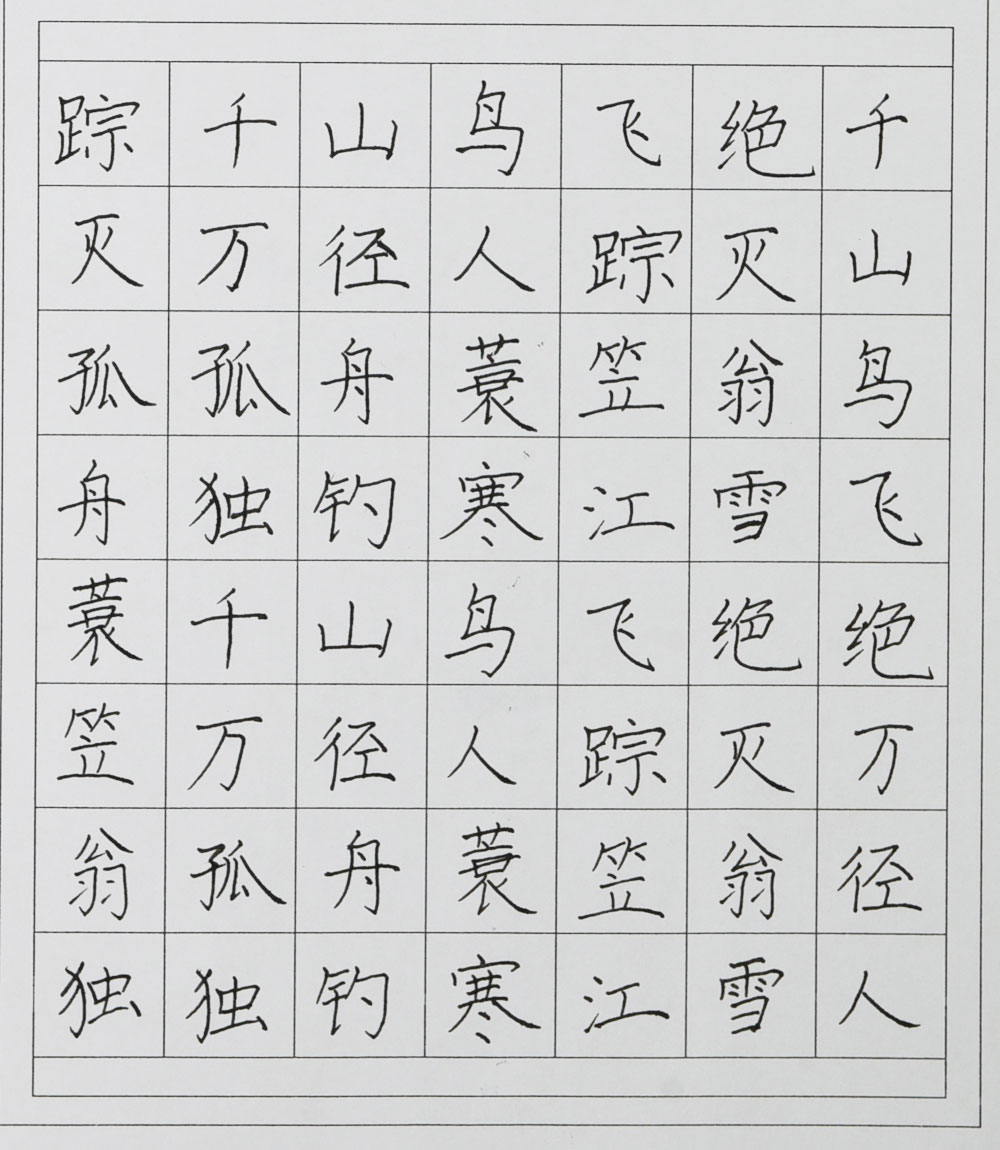 踪千山鸟飞绝千
灭万径人踪灭山
孤孤舟蓑笠翁鸟
舟独钓寒江雪飞
蓑千山鸟飞绝绝
笠万径人踪灭万
翁孤舟蓑笠翁径
独独钓寒江雪人